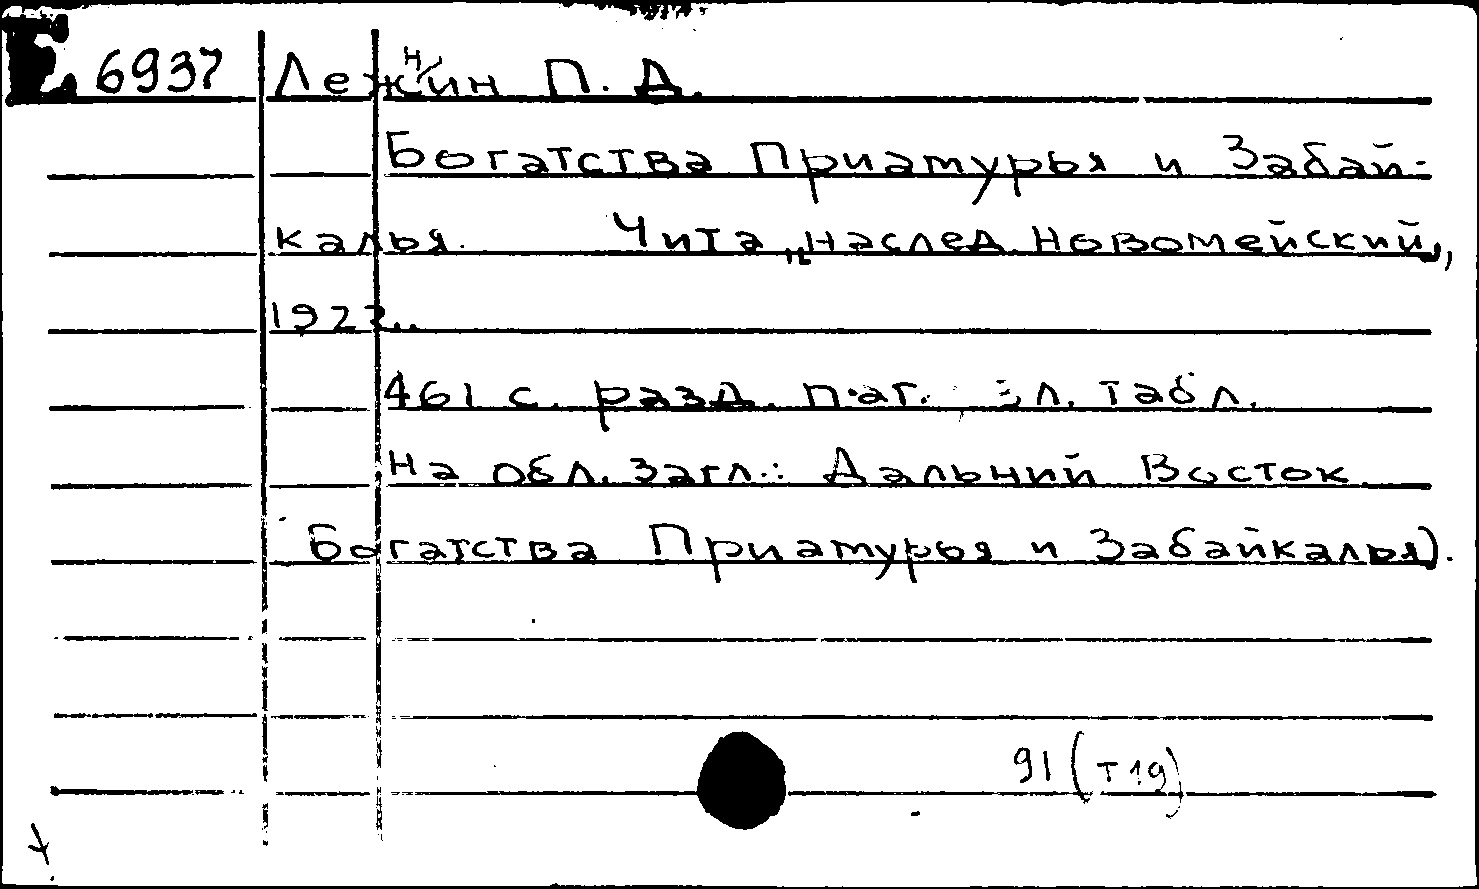 Е 6937 Лежнин П. Д.
Богатства Приамурья и Забай-
калья. Чита, „наслед. Новомейский",
1922..
461 с. разд. паг. л. табл.
На обл. загл.: Дальний Восток
Богатства Приамурья и Забайкалья).
91 (т 19)